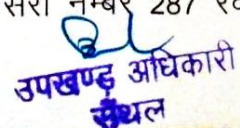 नम्बर 287
उपखण्ड अधिकारी
सैंथल